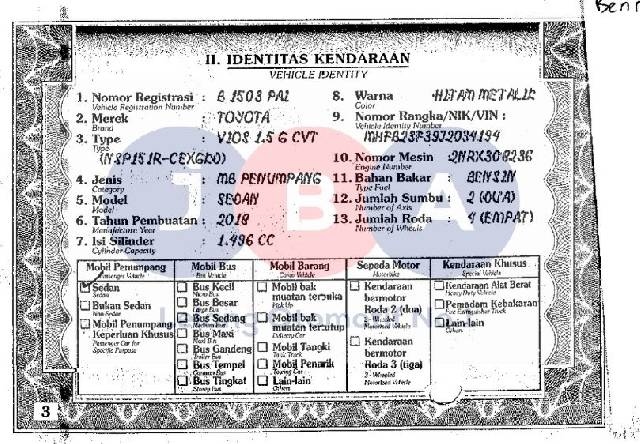 Benr
II. IDENTITAS KENDARAAN
VEHICLE IDENTITY
1. Nomor Registrasi : B 1503 PAI
Vehicle Registration Number
2. Merek : TOYOTA
Brand
3. Type : VIOS 1.5 G CVT
Type
(NSP151R-CEXGKD)
4. Jenis : MB PENUMPANG
Category
5. Model : SEDAN
Model
6. Tahun Pembuatan : 2018
Manufacture Year
7. Isi Silinder : 1.496 CC
Cylinder Capacity
8. Warna : HITAM METALIK
Color
9. Nomor Rangka/NIK/VIN :
Vehicle Identity Number
10. Nomor Mesin : 2NRX308236
Engine Number
11. Bahan Bakar : BENSIN
Type Fuel
12. Jumlah Sumbu : 2 (DUA)
Number of Axis
13. Jumlah Roda : 4 (EMPAT)
Number of Wheels
JBA
Mobil Penumpang
Passenger Vehicle
Sedan
Sedan
Bukan Sedan
Non Sedan
Mobil Penumpang
Keperluan Khusus
Passenger Car for
Specific Purpose
Mobil Bus
Bus Vehicle
Bus Kecil
Bus Besar
Bus Sedang
Bus Maxi
Bus Gandeng
Bus Tempel
Bus Tingkat
Mobil Barang
Mobil bak
muatan terbuka
Pick Up
Mobil bak
muatan tertutup
Delivery Car
Mobil Tangki
Tank Truck
Mobil Penarik
Towing Car
Lain-lain
Others
Sepeda Motor
Motorbike
Kendaraan
bermotor
Roda 2 (dua)
2-Wheeled
Motorized Vehicle
Kendaraan
bermotor
Roda 3 (tiga)
Motorized Vehicle
Kendaraan Khusus
Special Vehicle
Kendaraan Alat Berat
Heavy Duty Vehicle
Pemadam Kebakaran
Fire Extinguisher Truck
Lain-lain
Others
3